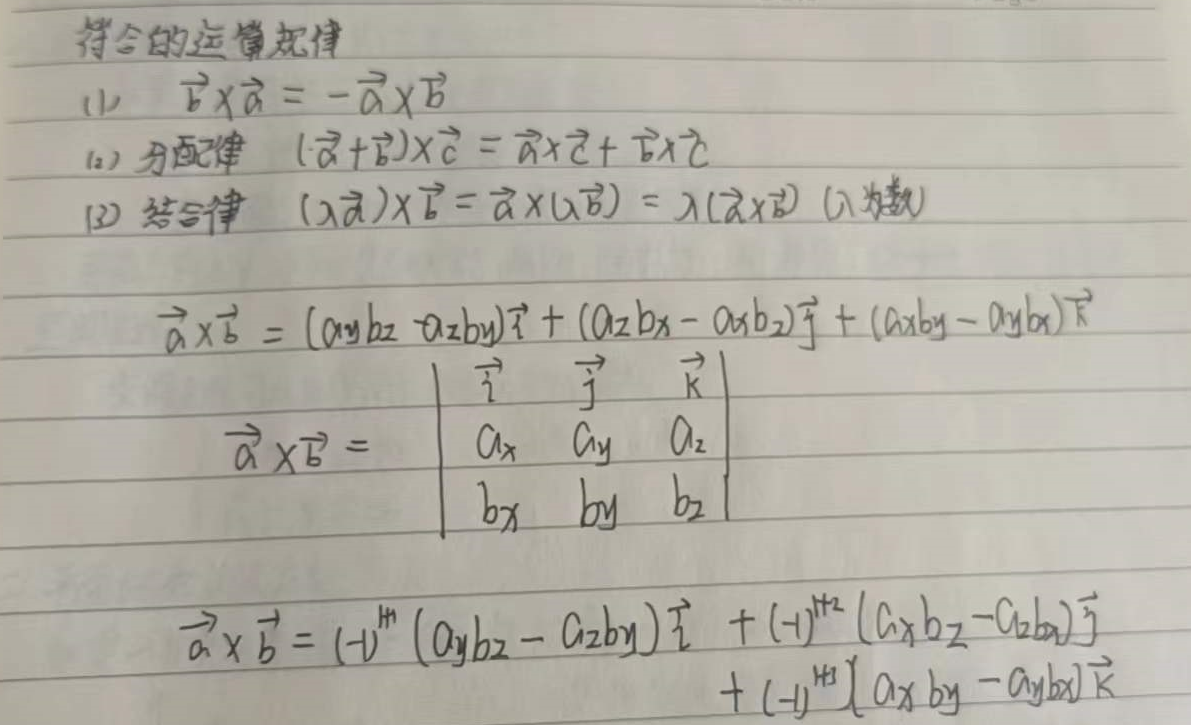 符合的运算规律
(1) \vec{b}×\vec{a} = -\vec{a}×\vec{b}
(2) 分配律 (\vec{a}+\vec{b})×\vec{c} = \vec{a}×\vec{c} + \vec{b}×\vec{c}
(3) 结合律 (λ\vec{a})×\vec{b} = \vec{a}×(λ\vec{b}) = λ(\vec{a}×\vec{b}) (λ为数)
\vec{a}×\vec{b} = (a_y b_z - a_z b_y)\vec{i} + (a_z b_x - a_x b_z)\vec{j} + (a_x b_y - a_y b_x)\vec{k}
| \vec{i} \vec{j} \vec{k} |
\vec{a}×\vec{b} = | a_x a_y a_z |
| b_x b_y b_z |
\vec{a}×\vec{b} = (-1)^{1+1}(a_y b_z - a_z b_y)\vec{i} + (-1)^{1+2}(a_x b_z - a_z b_x)\vec{j}
+ (-1)^{1+3}(a_x b_y - a_y b_x)\vec{k}